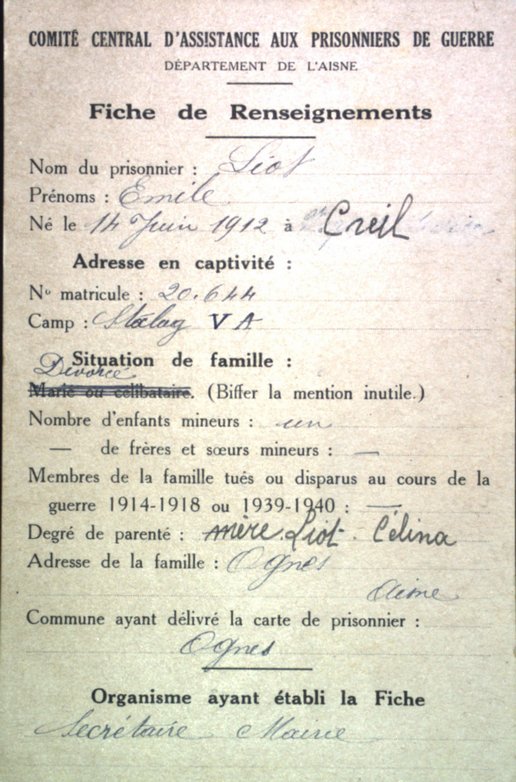 COMITÉ CENTRAL D'ASSISTANCE AUX PRISONNIERS DE GUERRE
DÉPARTEMENT DE L'AISNE
Fiche de Renseignements
Nom du prisonnier : Liot
Prénoms : Emile
Né le 14 Juin 1912 à Creil
Adresse en captivité :
No matricule : 20.644
Camp : Stalag V A
Situation de famille :
Divorcé
Marié ou célibataire. (Biffer la mention inutile.)
Nombre d'enfants mineurs : un
— de frères et sœurs mineurs : —
Membres de la famille tués ou disparus au cours de la
guerre 1914-1918 ou 1939-1940 : —
Degré de parenté : mère Liot Célina
Adresse de la famille : Ognes
Aisne
Commune ayant délivré la carte de prisonnier :
Ognes
Organisme ayant établi la Fiche
Secrétaire Mairie